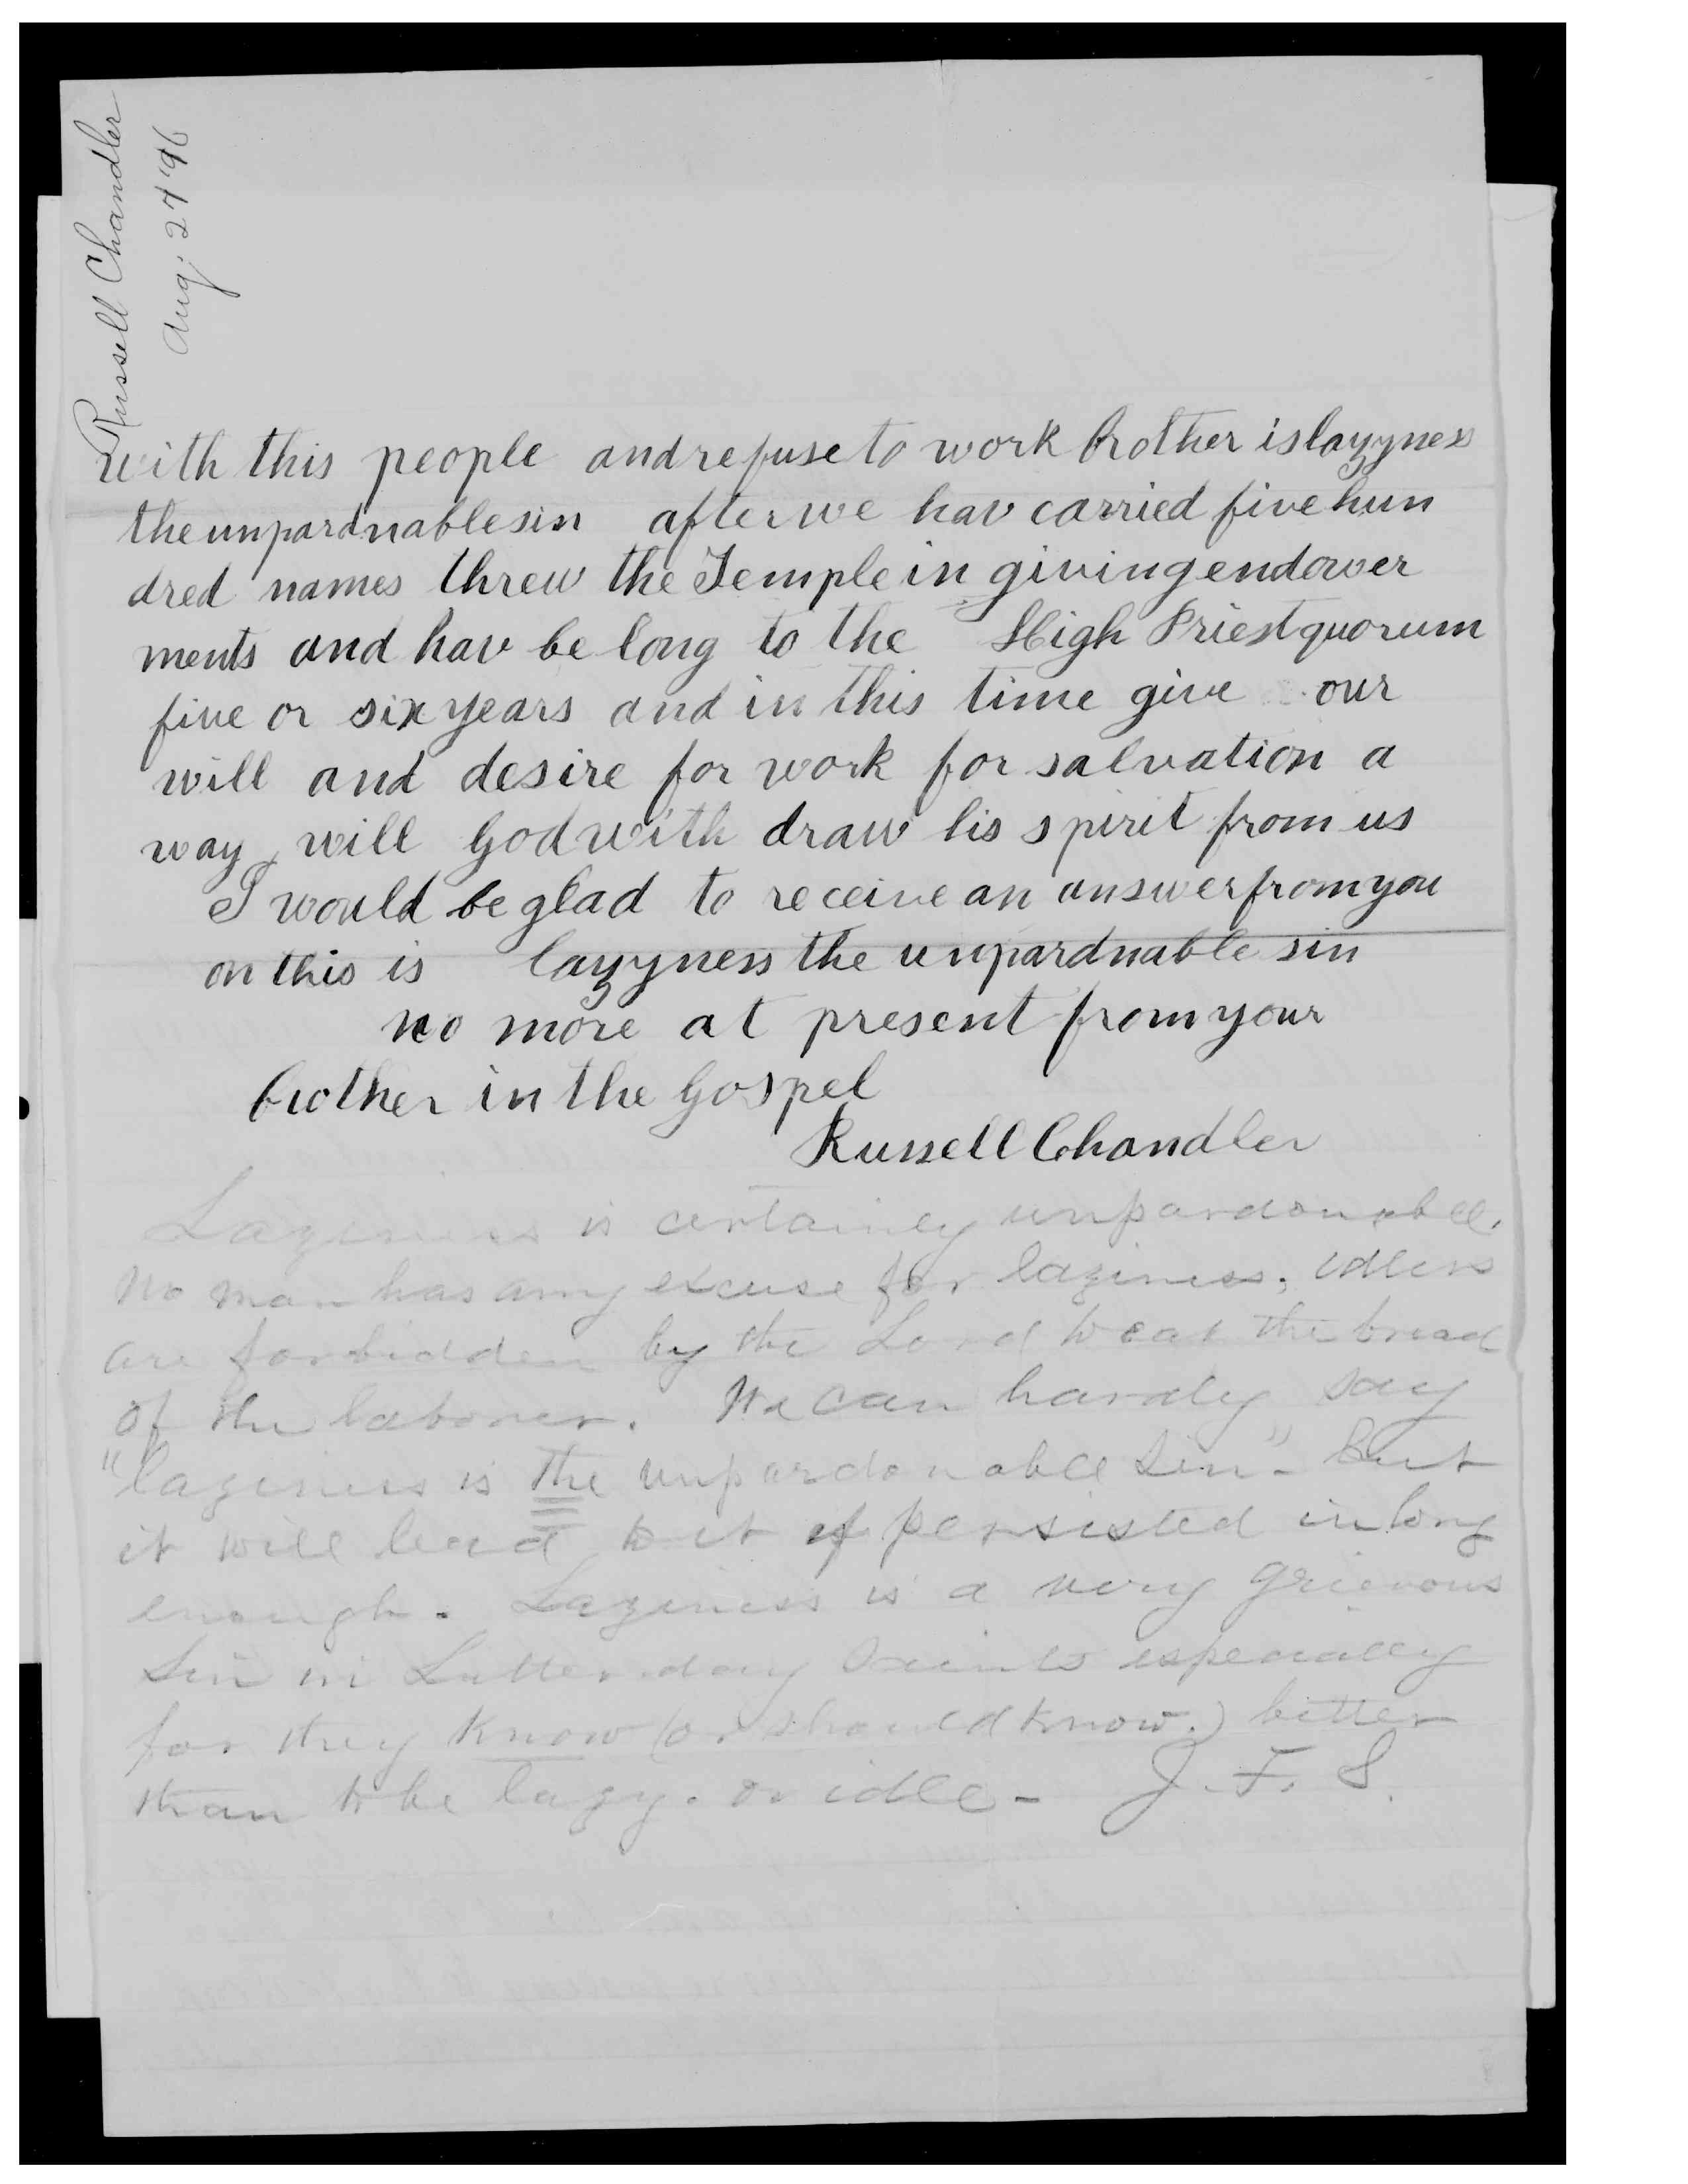 Russell Chandler
Aug; 27 '96
with this people and refuse to work brother is lazyness
the unpardnable sin after we hav carried five hun
dred names threw the Temple in giving endower
ments and hav be long to the High Priest quorum
five or six years and in this time give our
will and desire for work for salvation a
way, will God with draw his spirit from us
I would be glad to receive an answer from you
on this is lazyness the unpardnable sin
no more at present from your
brother in the Gospel
Russell Chandler
Laziness is certainly unpardonable.
No man has any excuse for laziness. Idlers
are forbidden by the Lord to eat the bread
of the laborer. We can hardly say
"laziness is the unpardonable Sin" - But
it will lead to it if persisted in long
enough. Laziness is a very grievous
Sin in Latter day Saints especially
for they know (or should know.) better
than to be lazy. or idle - J. F. S.